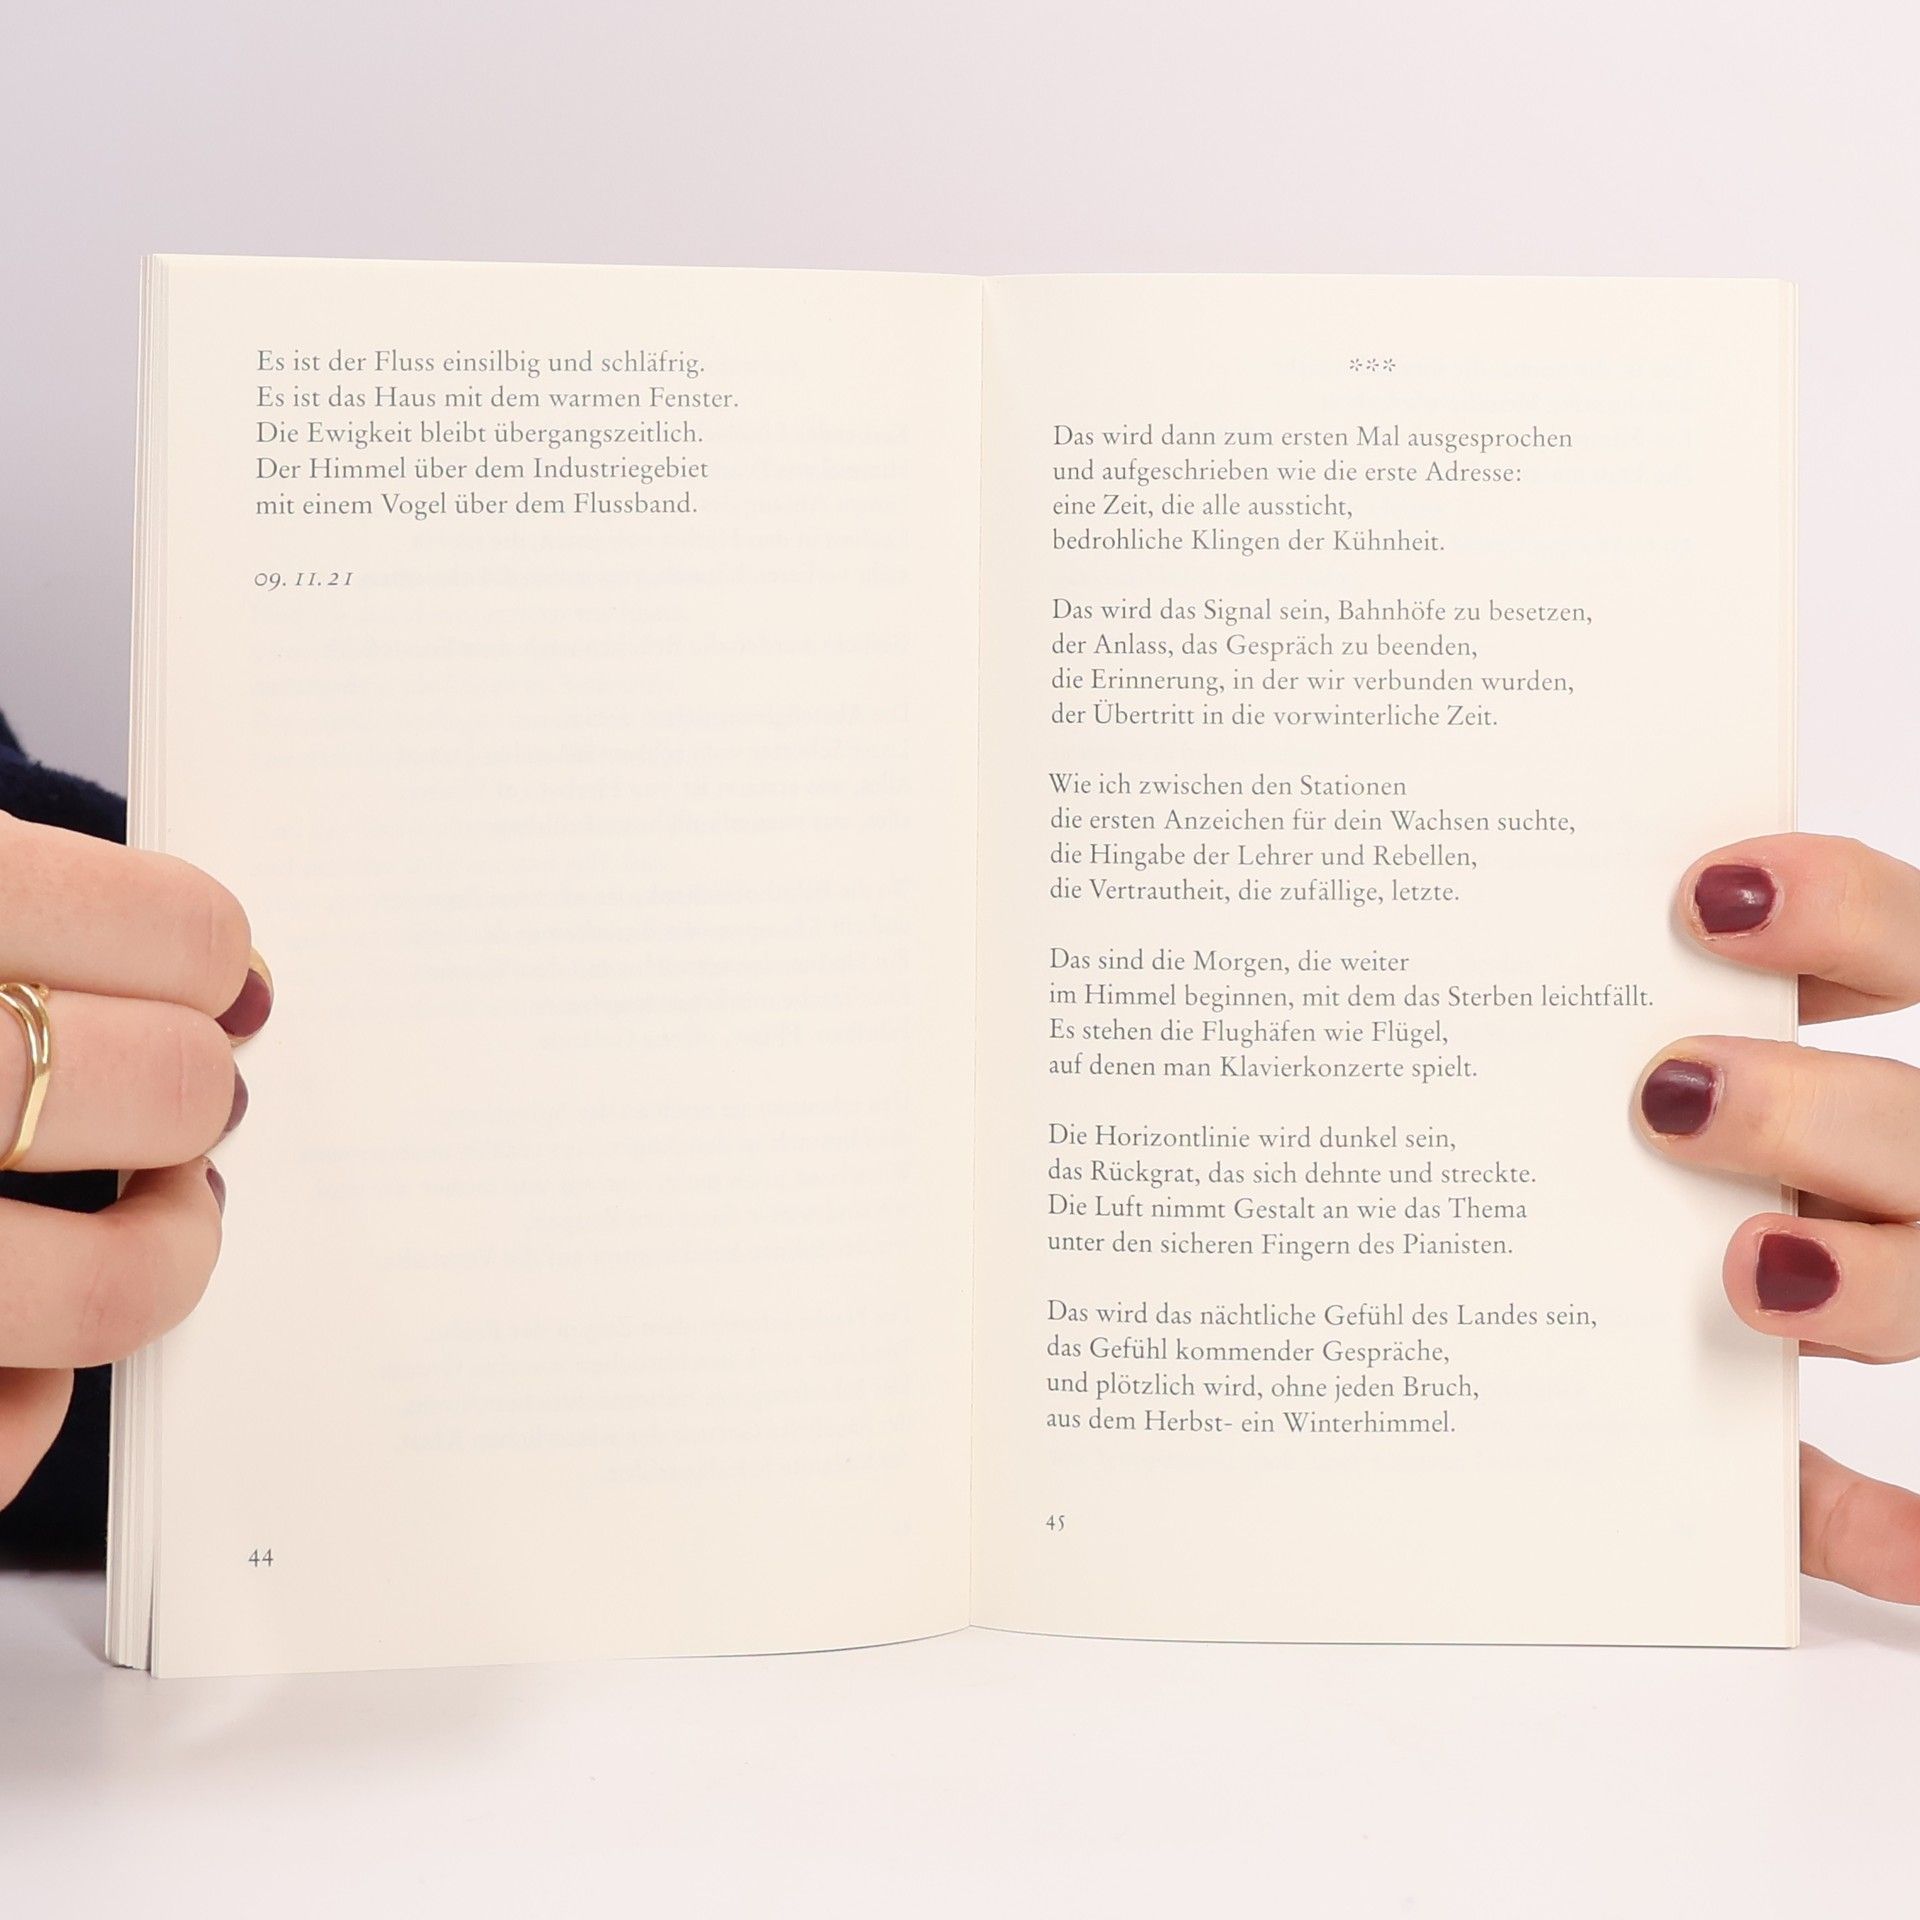 Es ist der Fluss einsilbig und schläfrig.
Es ist das Haus mit dem warmen Fenster.
Die Ewigkeit bleibt übergangszeitlich.
Der Himmel über dem Industriegebiet
mit einem Vogel über dem Flussband.
09. 11. 21
44
***
Das wird dann zum ersten Mal ausgesprochen
und aufgeschrieben wie die erste Adresse:
eine Zeit, die alle aussticht,
bedrohliche Klingen der Kühnheit.
Das wird das Signal sein, Bahnhöfe zu besetzen,
der Anlass, das Gespräch zu beenden,
die Erinnerung, in der wir verbunden wurden,
der Übertritt in die vorwinterliche Zeit.
Wie ich zwischen den Stationen
die ersten Anzeichen für dein Wachsen suchte,
die Hingabe der Lehrer und Rebellen,
die Vertrautheit, die zufällige, letzte.
Das sind die Morgen, die weiter
im Himmel beginnen, mit dem das Sterben leichtfällt.
Es stehen die Flughäfen wie Flügel,
auf denen man Klavierkonzerte spielt.
Die Horizontlinie wird dunkel sein,
das Rückgrat, das sich dehnte und streckte.
Die Luft nimmt Gestalt an wie das Thema
unter den sicheren Fingern des Pianisten.
Das wird das nächtliche Gefühl des Landes sein,
das Gefühl kommender Gespräche,
und plötzlich wird, ohne jeden Bruch,
aus dem Herbst- ein Winterhimmel.
45